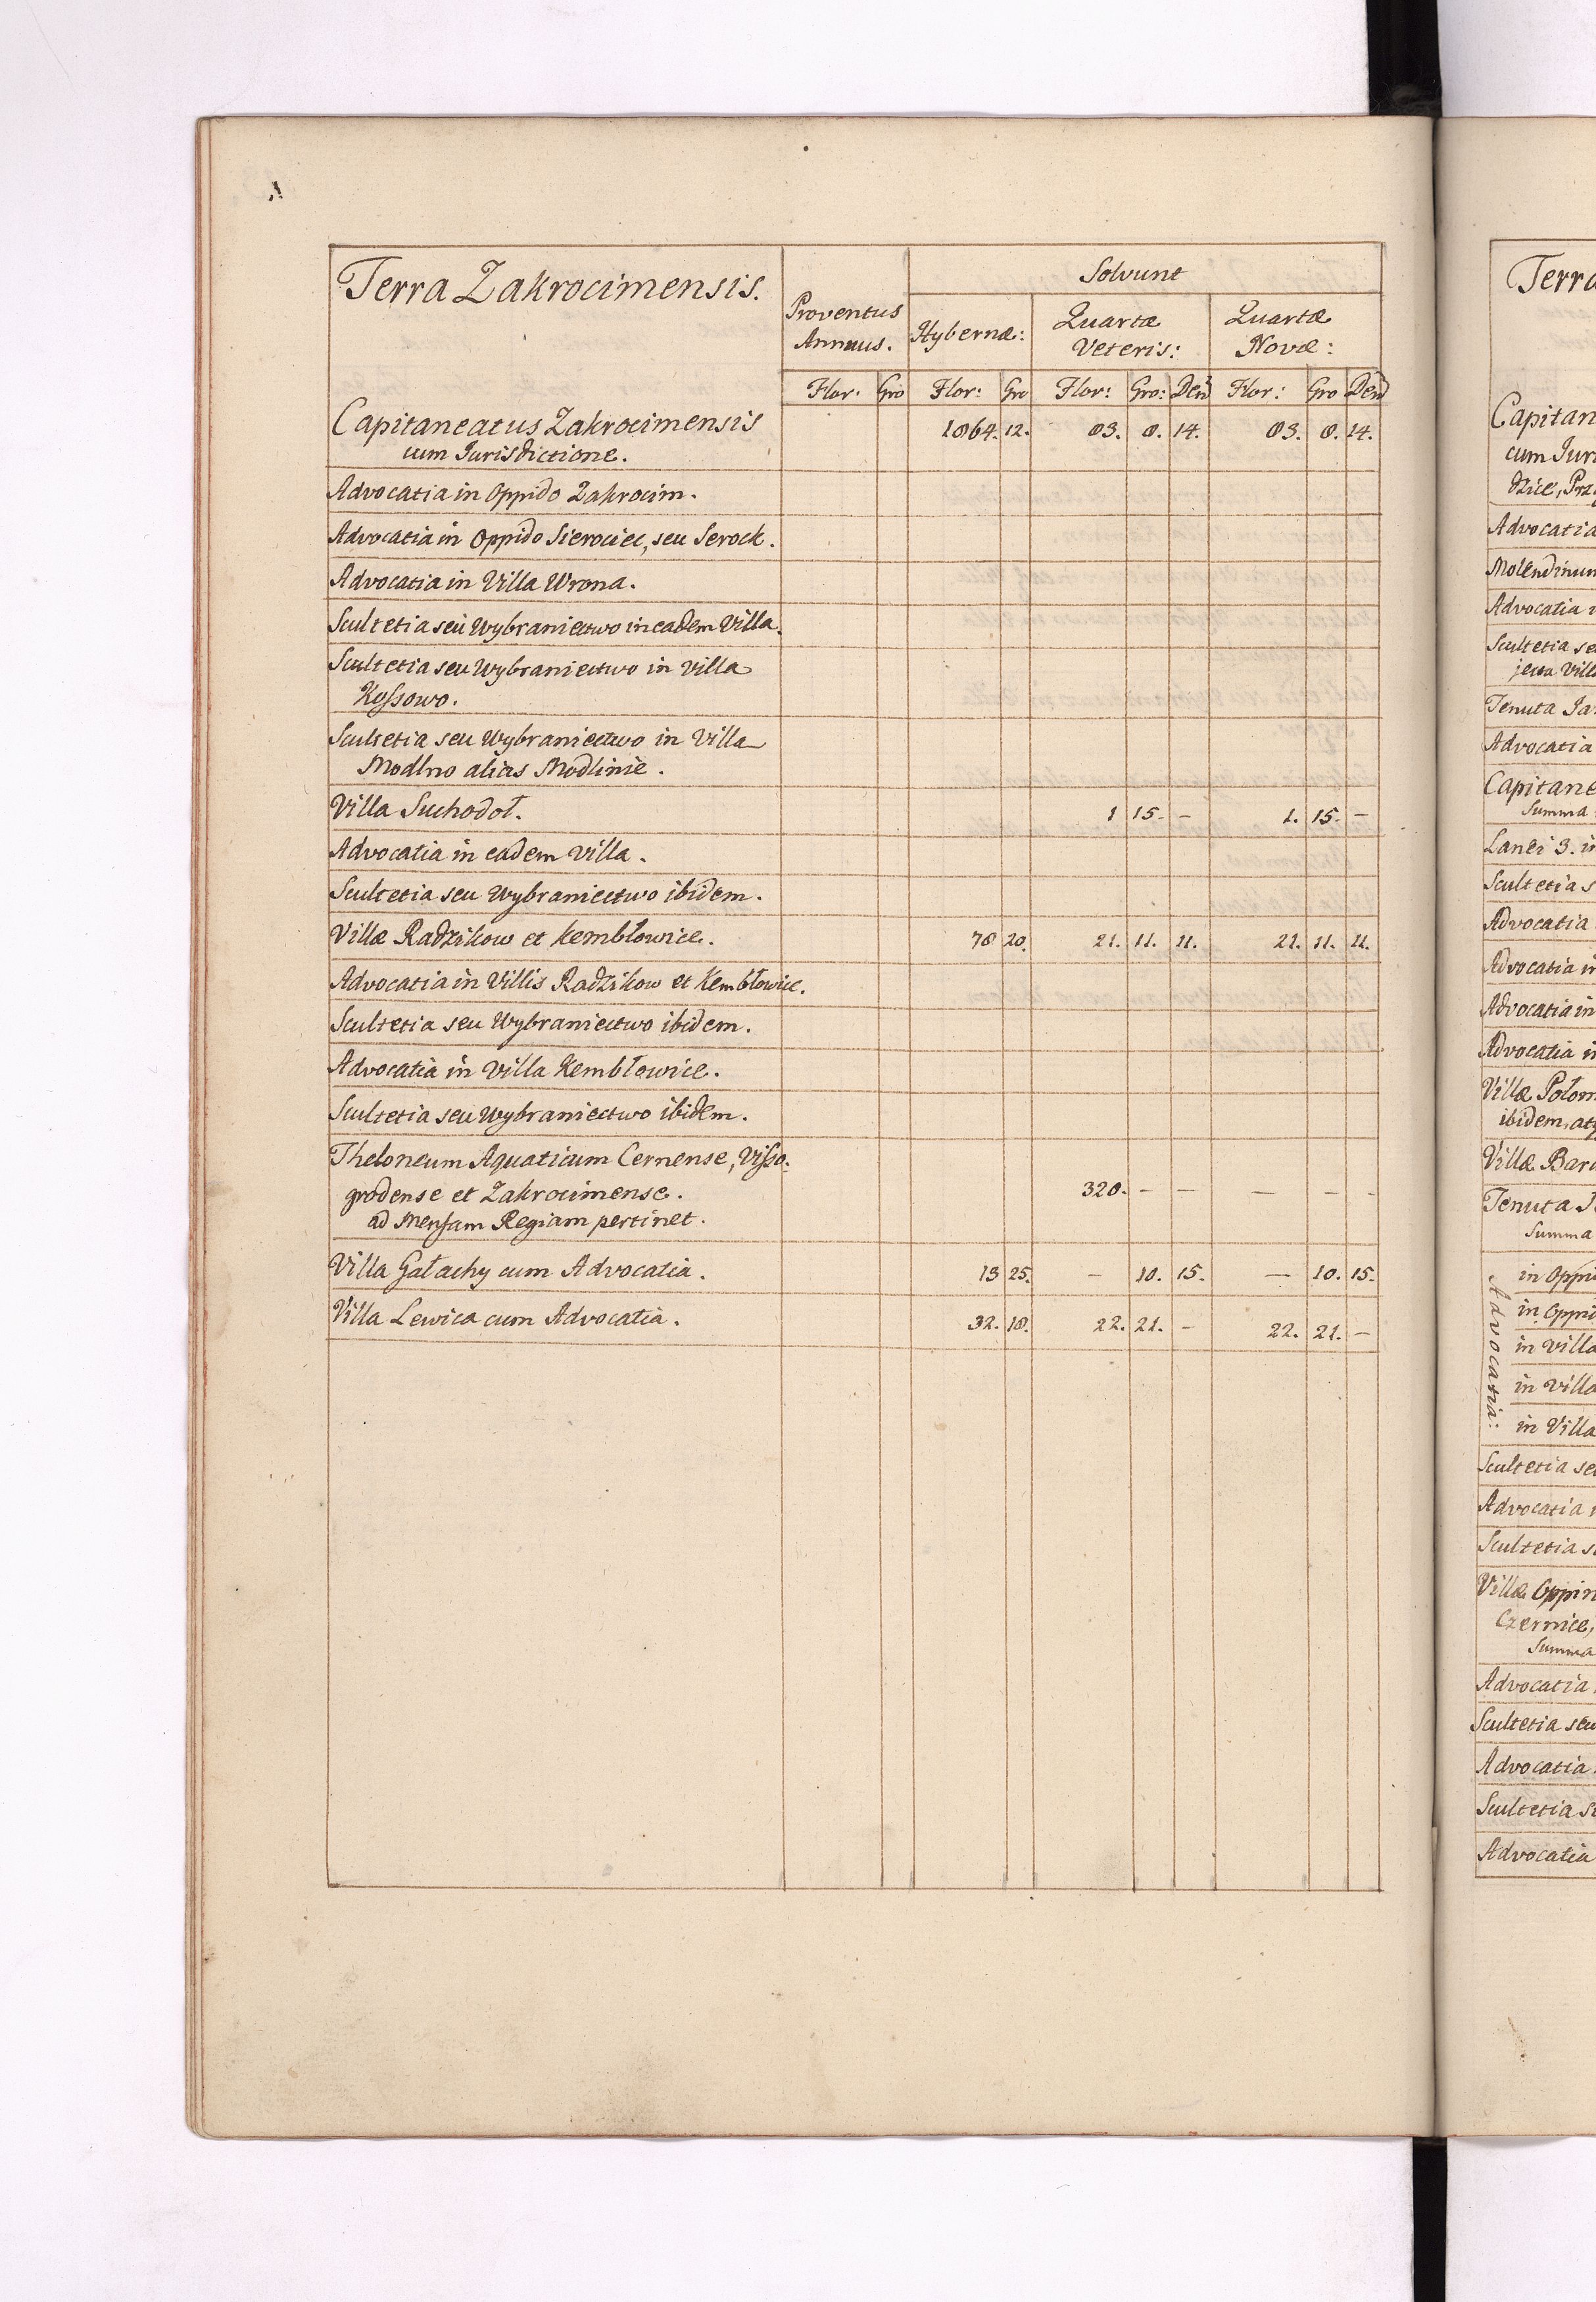 Terra Zakrocimensis.
Proventus
Annuus.
Solvunt
Hybernæ:
Quartæ
Veteris:
Quartæ
Novæ:
Flor. Gro Flor: Gro Flor: Gro: Den Flor: Gro Den
Capitaneatus Zakrocimensis 1864. 12. 83. 8. 14. 83. 8. 14.
cum Jurisdictione.
Advocatia in Oppido Zakrocim.
Advocatia in Oppido Sierociec, seu Serock.
Advocatia in Villa Wrona.
Scultetia seu Wybraniectwo in eadem Villa.
Scultetia seu Wybraniectwo in Villa
Kossowo.
Scultetia seu Wybraniectwo in Villa
Modlno alias Modlinie.
Villa Suchodoł. 1 15. – 1. 15. –
Advocatia in eadem Villa.
Scultetia seu Wybraniectwo ibidem.
Villæ Radzikow et Kembłowice. 78 20. 21. 11. 11. 21. 11. 11.
Advocatia in Villis Radzikow et Kembłowice.
Scultetia seu Wybraniectwo ibidem.
Advocatia in Villa Kembłowice.
Scultetia seu Wybraniectwo ibidem.
Theloneum Aquaticum Cernense, Visso:
grodense et Zakrocimense. 320. – – – – –
ad Mensam Regiam pertinet.
Villa Gałachy cum Advocatia. 13 25. – 10. 15. – 10. 15.
Villa Lewica cum Advocatia. 32. 18. 22. 21. – 22. 21. –
Terra
Capitan
cum Jur
dzice, Prz
Advocatia
Molendinum
Advocatia
Scultetia se
Villa
Tenuta Ja
Advocatia
Capitane
Summa
Lanei 3. in
Scultetia s
Advocatia
Advocatia in
Advocatia in
Advocatia in
Villæ Połom
ibidem, at
Villæ Bar
Tenuta
Summa
Advocatia:
in Oppi
in Oppi
in Villa
in Villa
in Villa
Scultetia se
Advocatia
Scultetia s
Villæ Oppin
Czernice,
Summa
Advocatia
Scultetia seu
Advocatia
Scultetia s
Advocatia